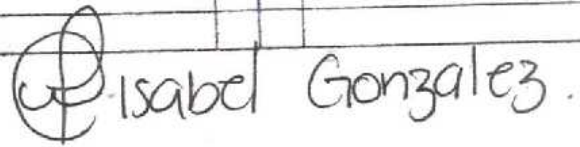 Isabel Gonzalez.